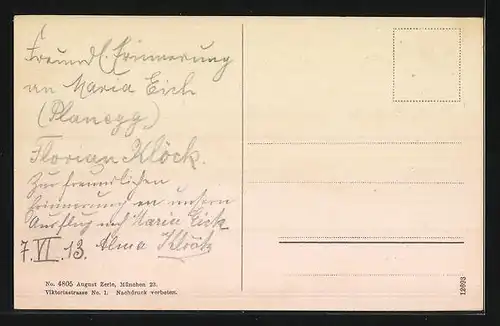 Freundl. Erinnerung
an Maria Eich
(Planegg)
Florian Klöck.
Zur freundlichen
Erinnerung an unsern
Ausflug nach Maria Eich
7. VI. 13. Alma Klöck
No. 4805 August Zerle, München 23.
Viktoriastrasse No. 1. Nachdruck verboten.
12693